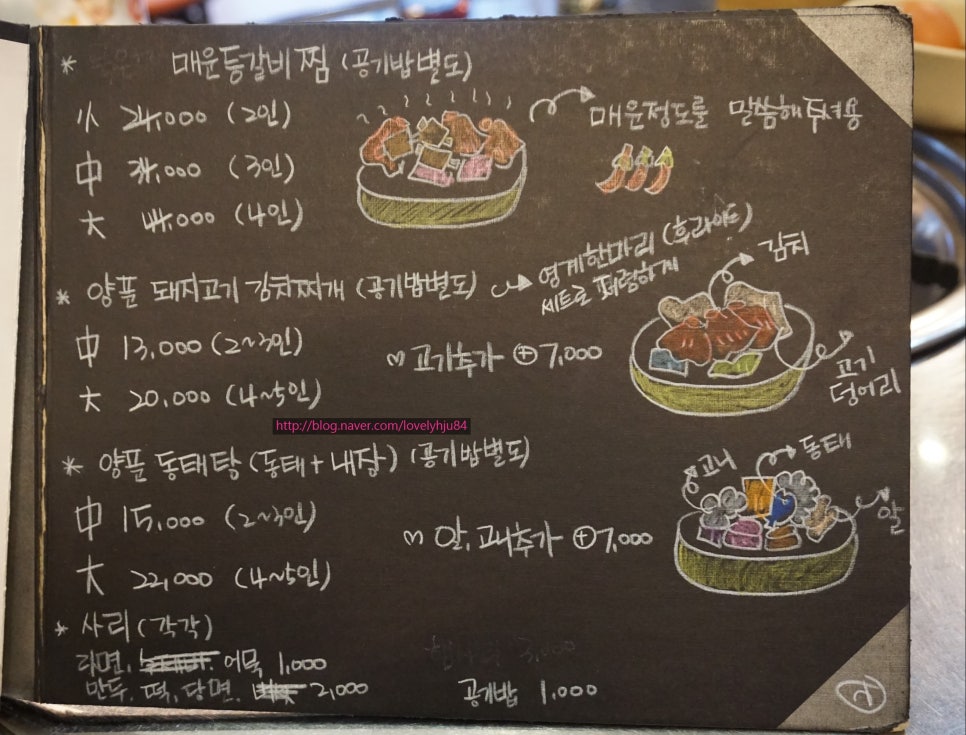 * 매운등갈비찜 (공기밥별도)
小 24,000 (2인)
매운정도를 말씀해주셔용
中 34,000 (3인)
大 44,000 (4인)
* 양푼 돼지고기 김치찌개 (공기밥별도)
영계한마리 (후라이드)
세트로 저렴하게
김치
中 13,000 (2~3인)
고기추가 ⊕ 7,000
고기
덩어리
大 20,000 (4~5인)
http://blog.naver.com/lovelyhju84
* 양푼 동태탕 (동태+내장) (공기밥별도)
고니
동태
알
中 15,000 (2~3인)
알, 고니추가 ⊕7,000
大 22,000 (4~5인)
* 사리 (각각)
라면, 어묵 1,000
만두, 떡, 당면, 2,000
3,000
공기밥 1,000
2